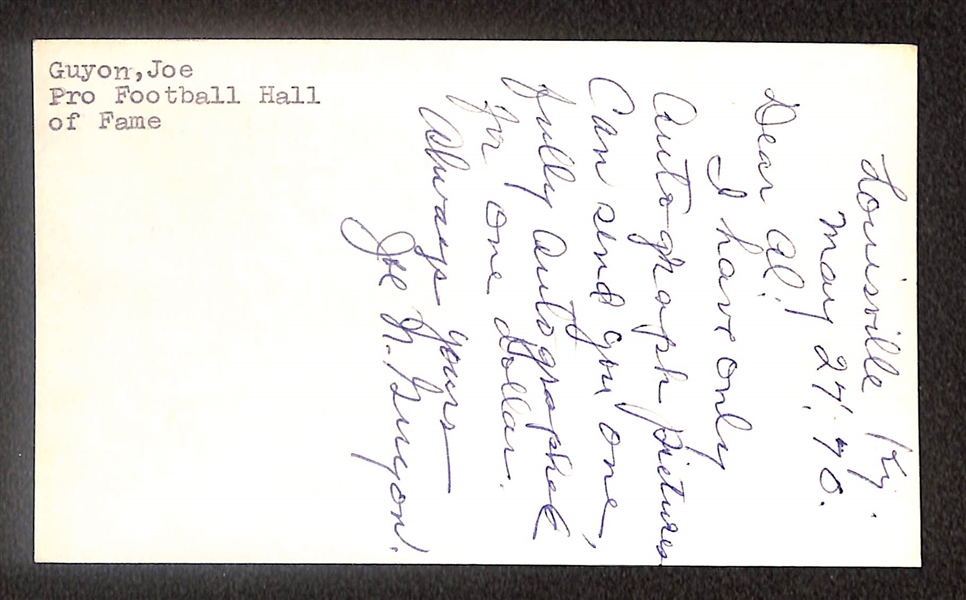 Guyon, Joe
Pro Football Hall
of Fame
Louisville Ky.
May 27, 70.
Dear Al!
I have only
Autograph pictures
Can send you one,
fully autographed
for one dollar.
Always yours
Joe N. Guyon!